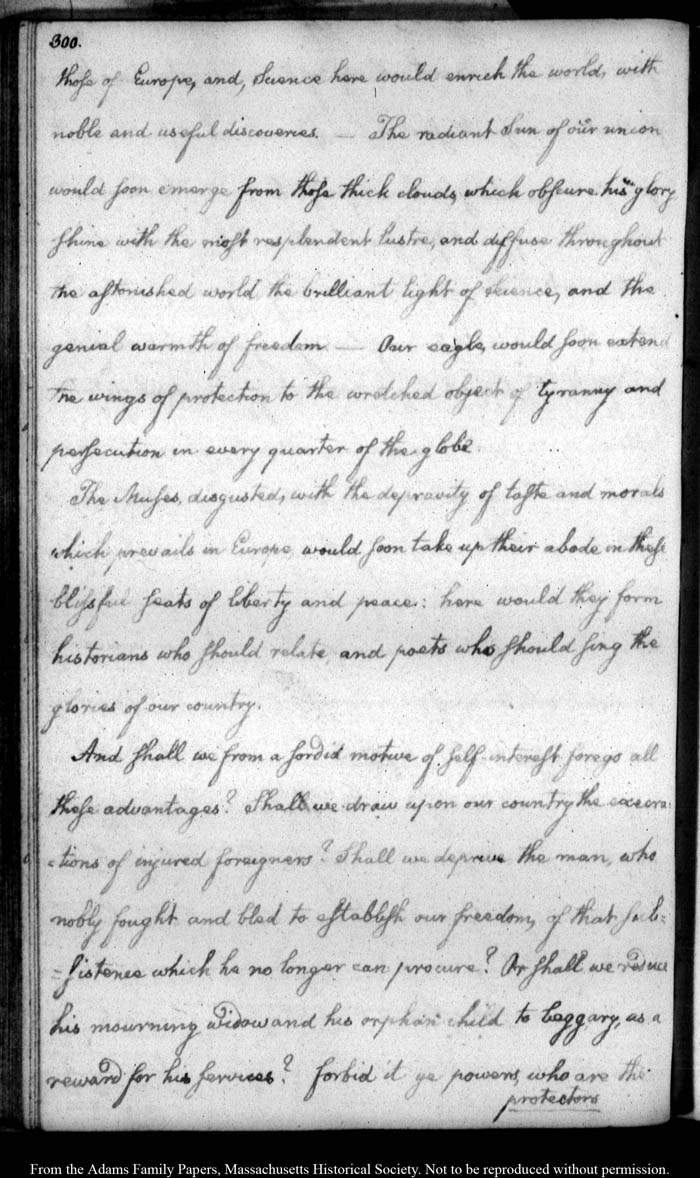 300.
those of Europe, and, Science here would enrich the world, with
noble and useful discoveries. — The radiant Sun of our union
would soon emerge from those thick clouds, which obscure his glory
shine with the most resplendent lustre, and diffuse throughout
the astonished world the brilliant light of Science, and the
genial warmth of freedom. — Our eagle, would soon extend
the wings of protection to the wretched object of tyranny and
persecution in every quarter of the globe.
The Muses, disgusted, with the depravity of taste and morals
which prevails in Europe, would soon take up their abode in these
blissful seats of liberty and peace: here would they form
historians who should relate, and poets who should sing the
glories of our country.
And shall we from a sordid motive of self-interest forego all
these advantages? Shall we draw upon our country the execra-
=tions of injured foreigners? Shall we deprive the man, who
nobly fought and bled to establish our freedom, of that sub=
=sistence which he no longer can procure? Or shall we reduce
his mourning widow and his orphan child to beggary, as a
reward for his services? forbid it ye powers, who are the
protectors
From the Adams Family Papers, Massachusetts Historical Society. Not to be reproduced without permission.